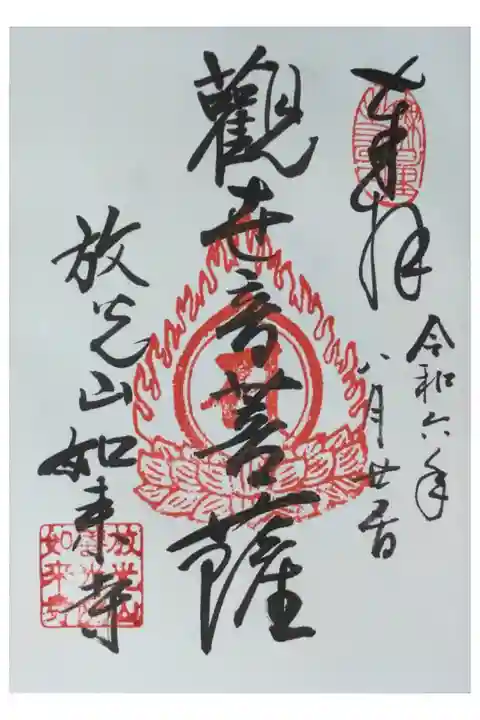 奉拝
令和六年
八月廿
觀世音菩薩
放光山如来寺
放光山
如来寺